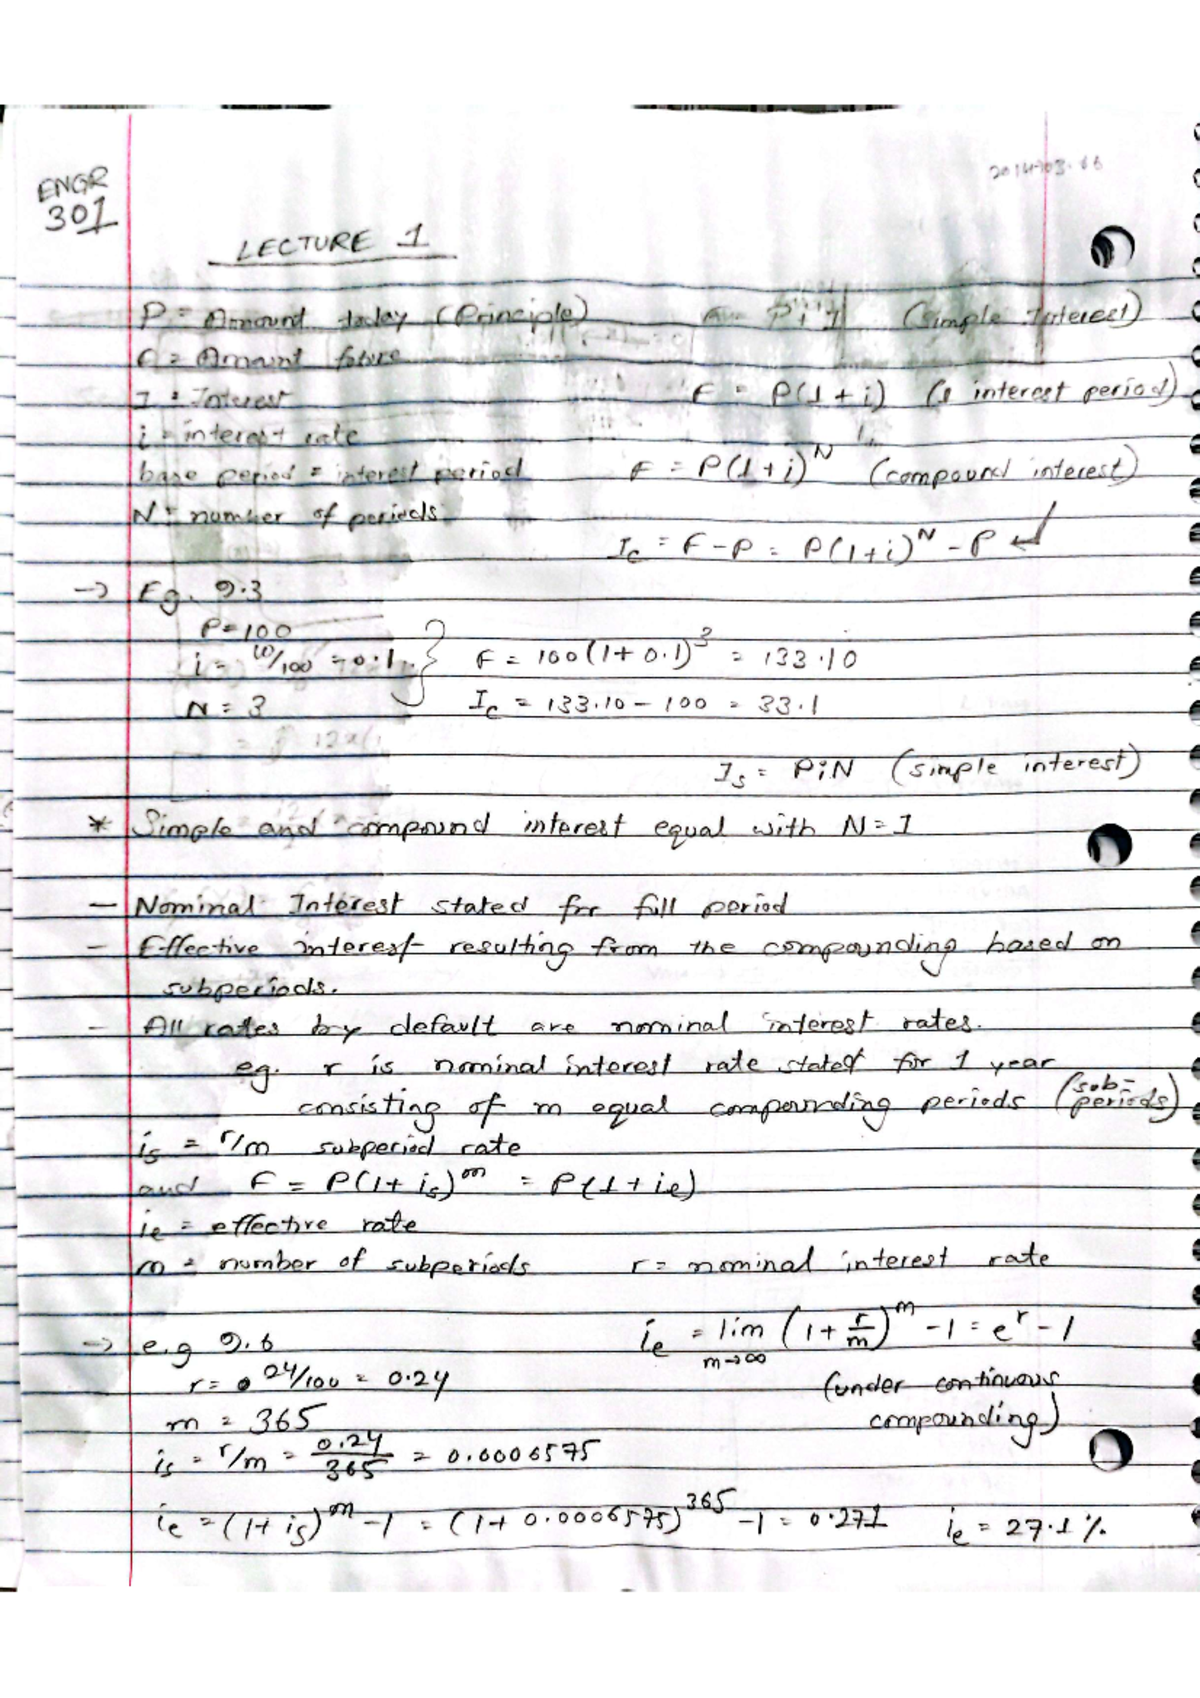 ENGR
301
LECTURE 1
P = Amount today (Principle) (Simple Interest)
F = Amount future
I = Interest F = P(1+i) (1 interest period)
i = interest rate
base period = interest period F = P(1+i)^N (compound interest)
N = number of periods
I_c = F-P = P(1+i)^N - P ↵
→ Eg. 9.3
P=100
i = 10/100 = 0.1 } F = 100(1+0.1)^3 = 133.10
N = 3 I_c = 133.10 - 100 = 33.1
I_s = PiN (simple interest)
* Simple and compound interest equal with N=1
- Nominal Interest stated for full period
- Effective interest resulting from the compounding based on
subperiods.
- All rates by default are nominal interest rates.
eg. r is nominal interest rate stated for 1 year
consisting of m equal compounding periods (sub-periods)
i_s = r/m subperiod rate
and F = P(1+i_s)^m = P(1+i_e)
i_e = effective rate
m = number of subperiods r = nominal interest rate
→ e.g 9.6 i_e = lim m→∞ (1+r/m)^m -1 = e^r -1
r = 24/100 = 0.24 (under continuous
m = 365 compounding)
i_s = r/m = 0.24/365 = 0.0006575
i_e = (1+i_s)^m -1 = (1+0.0006575)^365 -1 = 0.271 i_e = 27.1%